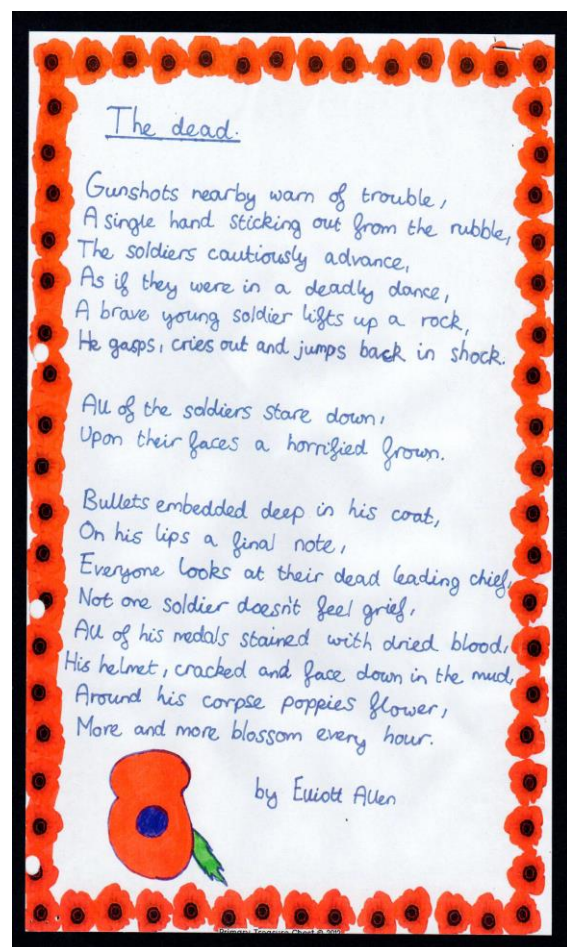 The dead.
Gunshots nearby warn of trouble,
A single hand sticking out from the rubble,
The soldiers cautiously advance,
As if they were in a deadly dance,
A brave young soldier lifts up a rock,
He gasps, cries out and jumps back in shock.
All of the soldiers stare down,
Upon their faces a horrified frown.
Bullets embedded deep in his coat,
On his lips a final note,
Everyone looks at their dead leading chief,
Not one soldier doesn't feel grief,
All of his medals stained with dried blood,
His helmet, cracked and face down in the mud,
Around his corpse poppies flower,
More and more blossom every hour.
by Elliott Allen
Primary Treasure Chest ©